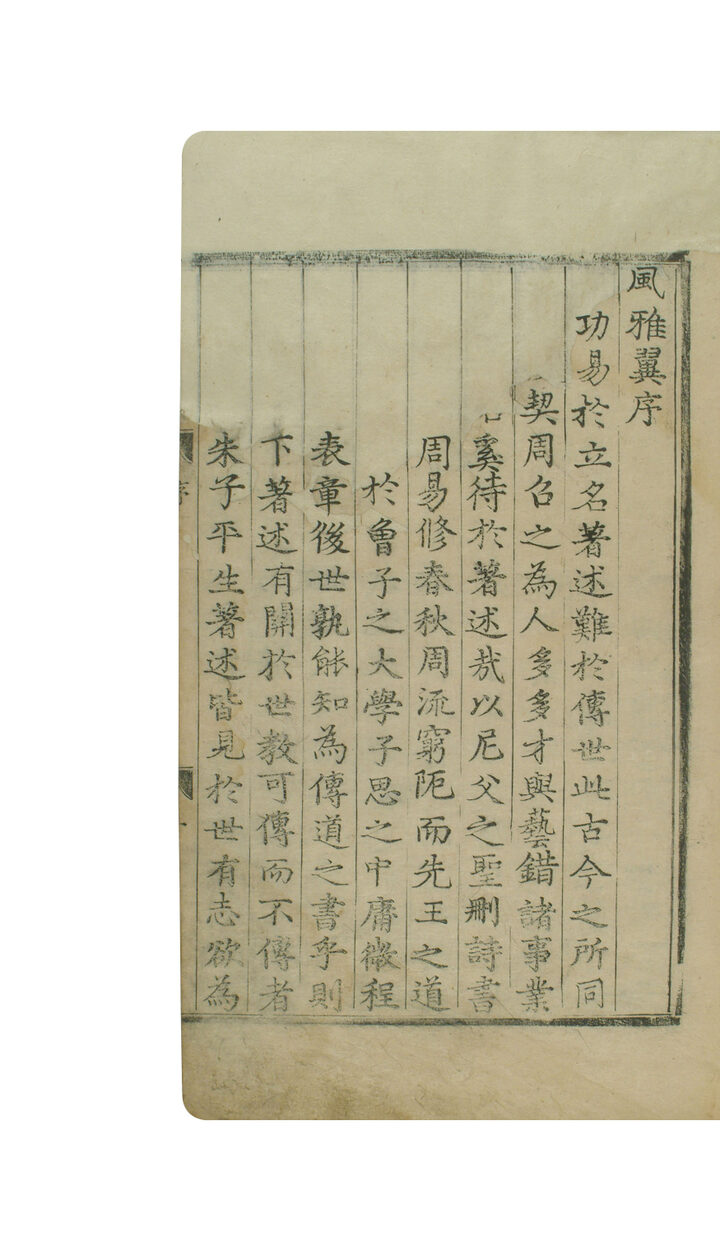 風雅翼序
功易於立名著述難於傳世此古今之所同
契周召之為人多多才與藝錯諸事業
奚待於著述哉以尼父之聖刪詩書
周易修春秋周流窮阨而先王之道
於魯子之大學子思之中庸微程
表章後世孰能知為傳道之書乎則
下著述有關於世教可傳而不傳者
朱子平生著述皆見於世有志欲為
序